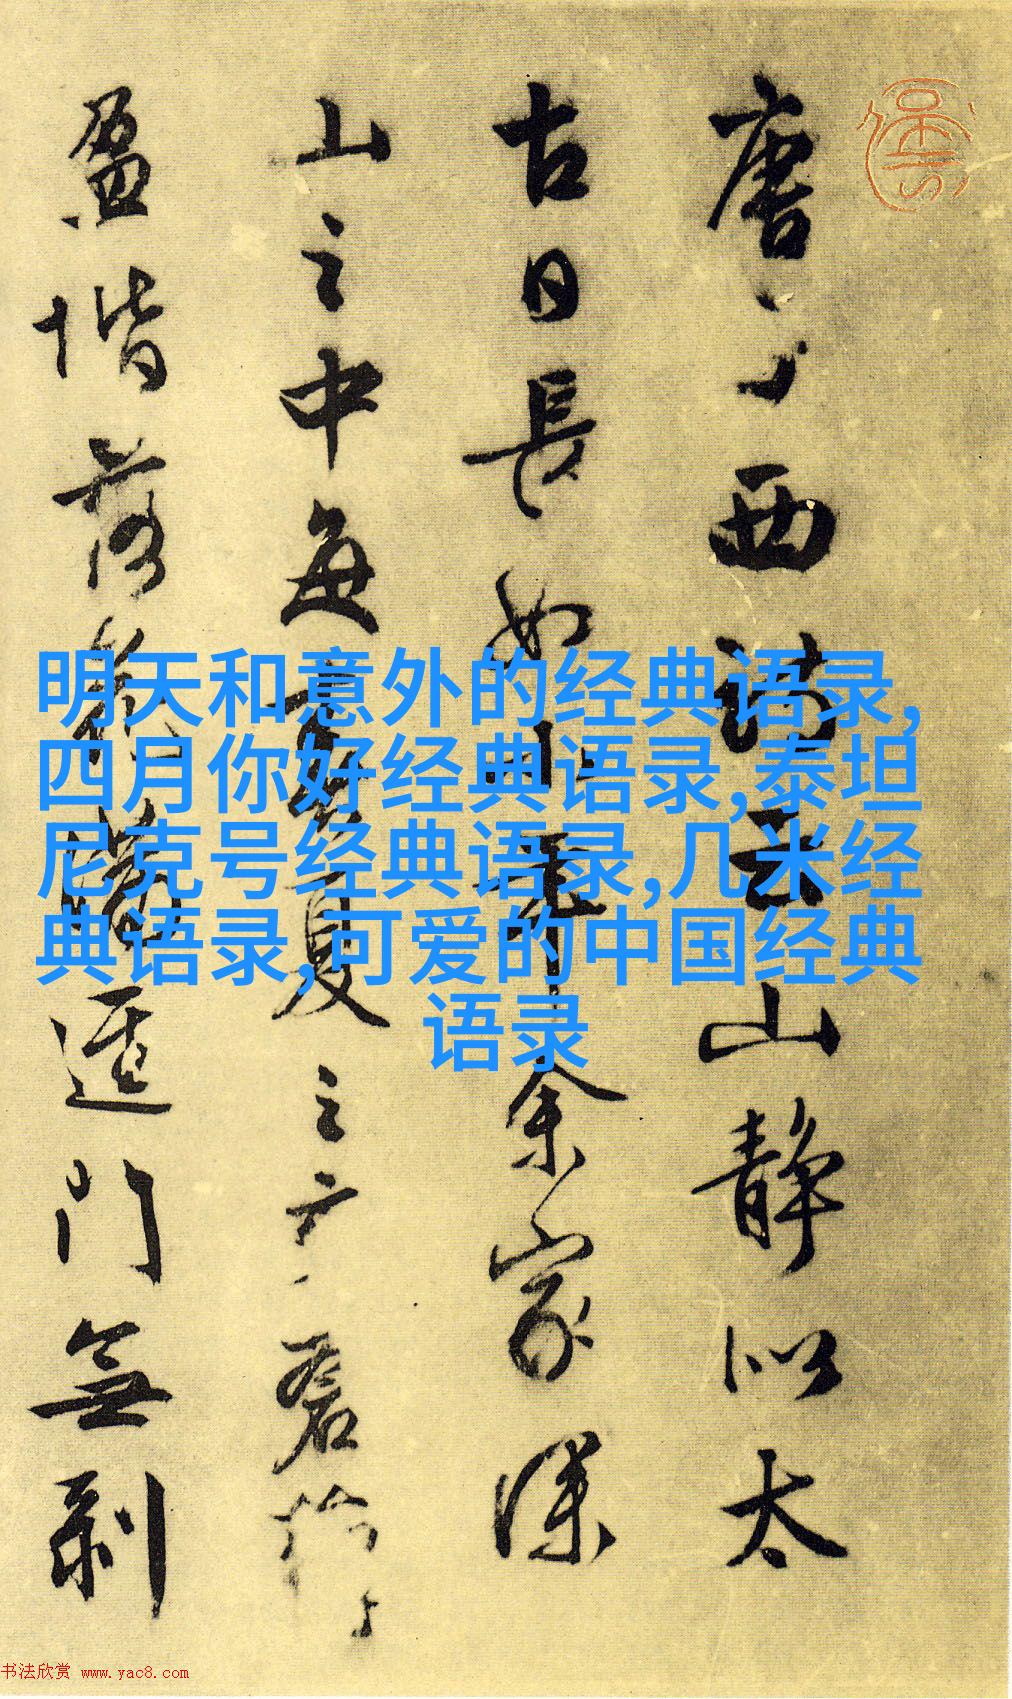 唐子西詩云山靜似太
古日長如小年余家深
山之中每春夏之交蒼蘚
盈堦落花滿徑門無剥
明天和意外的经典语录,
四月你好经典语录,泰坦
尼克号经典语录,几米经
典语录,可爱的中国经典
语录
书法欣赏 www.yac8.com